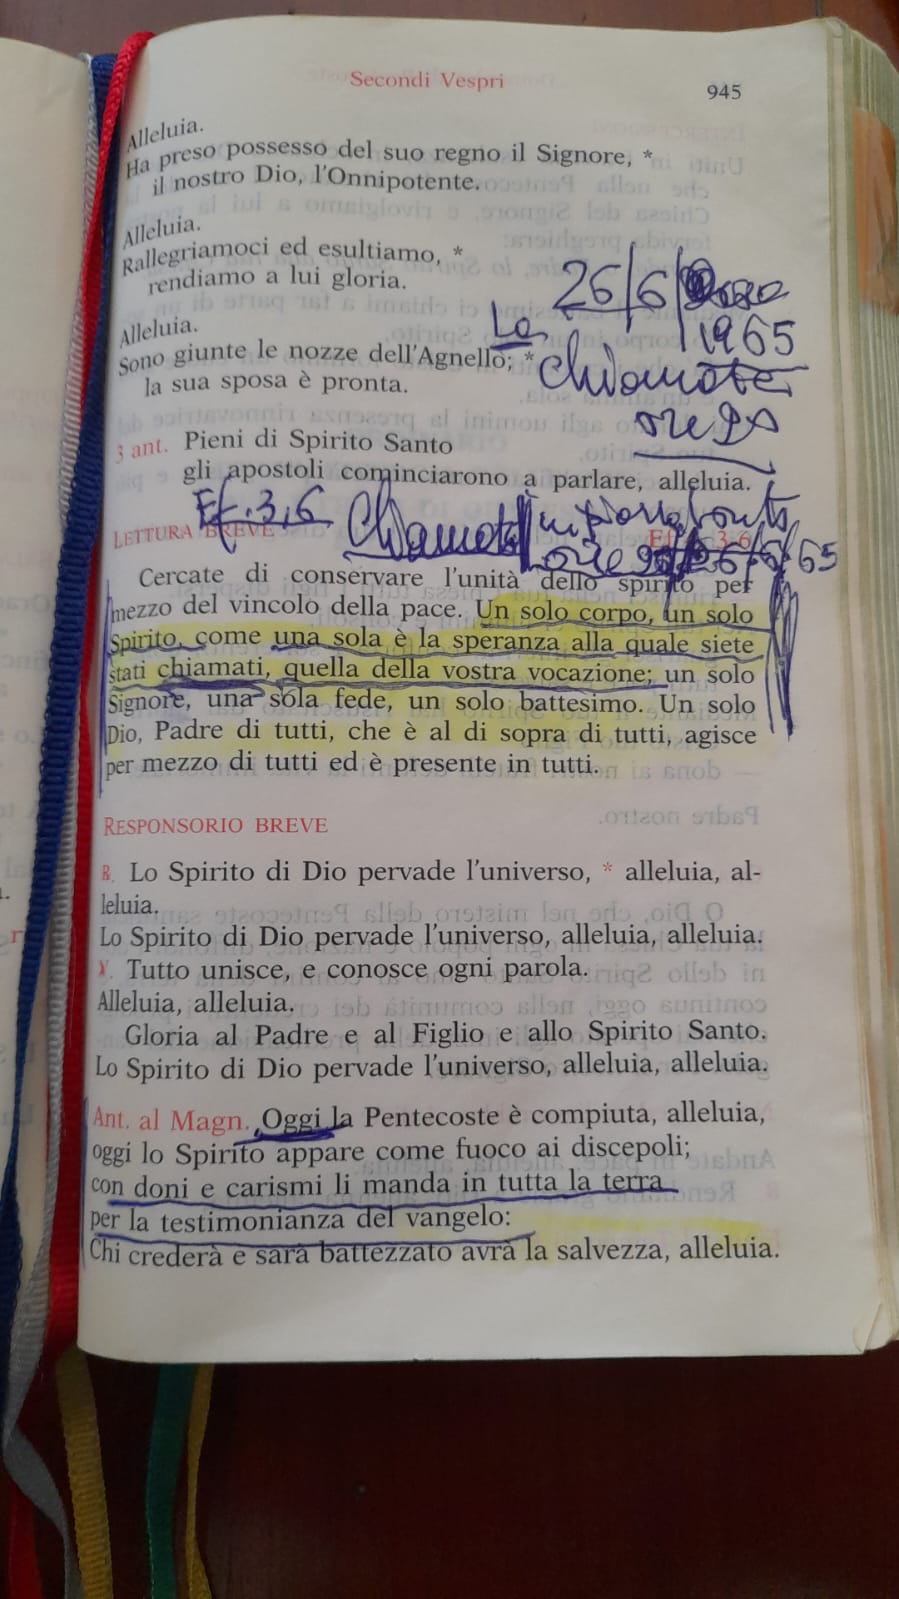 Secondi Vespri
945
Alleluia.
Ha preso possesso del suo regno il Signore, *
il nostro Dio, l'Onnipotente.
Alleluia.
Rallegriamoci ed esultiamo, *
rendiamo a lui gloria.
26/6/
1965
La
Alleluia.
Sono giunte le nozze dell'Agnello; *
Chiamata
la sua sposa è pronta.
3 ant. Pieni di Spirito Santo
gli apostoli cominciarono a parlare, alleluia.
Ef. 3,6
Chiamata
LETTURA BREVE Ef 3-6
65
Cercate di conservare l'unità dello spirito per
mezzo del vincolo della pace. Un solo corpo, un solo
Spirito, come una sola è la speranza alla quale siete
stati chiamati, quella della vostra vocazione; un solo
Signore, una sola fede, un solo battesimo. Un solo
Dio, Padre di tutti, che è al di sopra di tutti, agisce
per mezzo di tutti ed è presente in tutti.
RESPONSORIO BREVE
℟. Lo Spirito di Dio pervade l'universo, * alleluia, al-
leluia.
Lo Spirito di Dio pervade l'universo, alleluia, alleluia.
℣. Tutto unisce, e conosce ogni parola.
Alleluia, alleluia.
Gloria al Padre e al Figlio e allo Spirito Santo.
Lo Spirito di Dio pervade l'universo, alleluia, alleluia.
Ant. al Magn. Oggi la Pentecoste è compiuta, alleluia,
oggi lo Spirito appare come fuoco ai discepoli;
con doni e carismi li manda in tutta la terra
per la testimonianza del vangelo:
Chi crederà e sarà battezzato avrà la salvezza, alleluia.